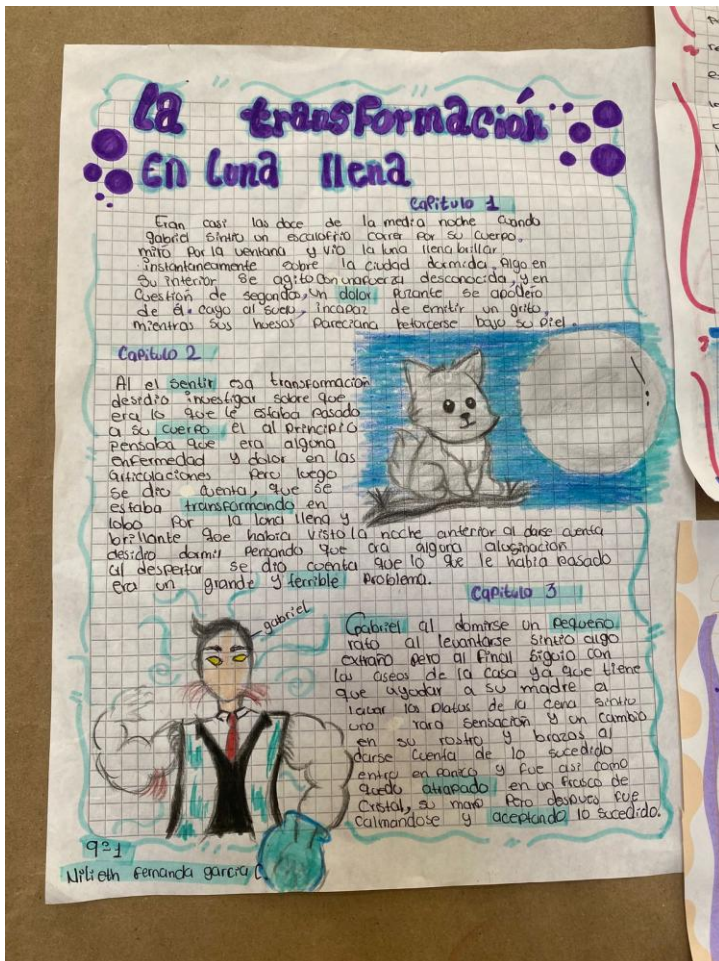 La transformación
En Luna llena
Capitulo 1
Eran casi las doce de la media noche cuando
gabriel sintio un escalofrio correr por su cuerpo.
miro por la ventana y vio la luna llena brillar
instantaneamente sobre la ciudad dormida. Algo en
su interior se agito con una fuerza desconocida, y en
cuestion de segundos, un dolor punzante se apodero
de él. cayo al suelo, incapaz de emitir un grito,
mientras sus huesos pareciana retorcerse bajo su piel.
Capitulo 2
Al el sentir esa transformacion
desidio investigar sobre que
era lo que le estaba pasado
a su cuerpo el al principio
pensaba que era alguna
enfermedad y dolor en las
articulaciones pero luego
se dio cuenta, que se
estaba transformando en
lobo por la luna llena y
brillante que habia visto la noche anterior al darse cuenta
desidio dormir pensando que era alguna alusinacion
al despertar se dio cuenta que lo que le habia pasado
era un grande y terrible problema.
Capitulo 3
gabriel
Gabriel al domirse un pequeño
rato al levantarse sintio algo
extraño pero al final siguio con
los aseos de la casa ya que tiene
que ayudar a su madre a
labar los platos de la cena sintio
una rara sensacion y un cambio
en su rostro y brazos al
darse cuenta de lo sucedido
entro en panico y fue asi como
quedo atrapado en un frasco de
Cristal, su mano pero despues fue
calmandose y aceptando lo sucedido.
9-1
Nilieth fernanda garcia C.